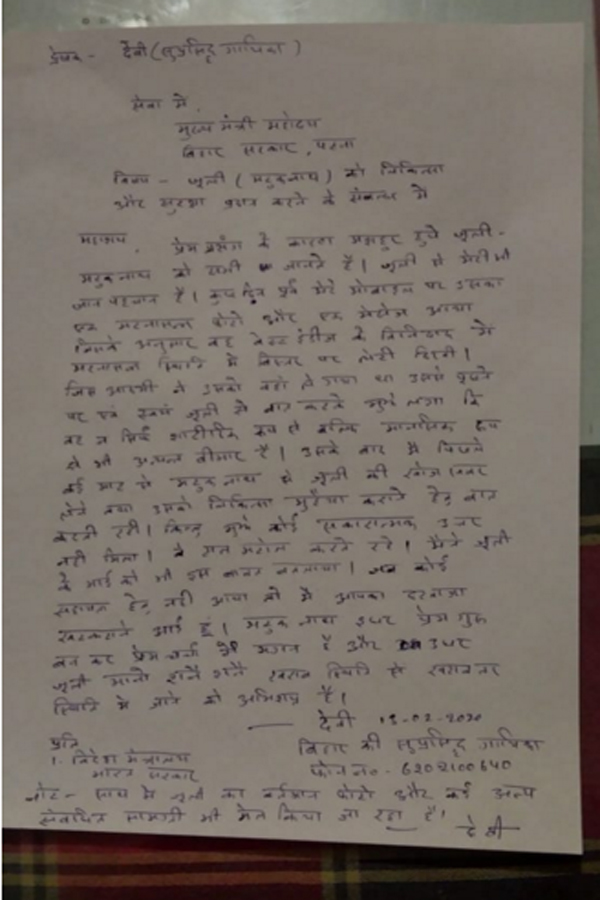 प्रेषक - देवी (सुप्रसिद्ध गायिका)
सेवा में,
मुख्य मंत्री महोदय
बिहार सरकार, पटना
विषय - जूली (मटुकनाथ) को चिकित्सा
और सुरक्षा प्रदान करने के संबन्ध में
महाशय, प्रेम प्रसंग के कारण मशहूर हुये जूली-
मटुकनाथ को सभी जानते हैं। जूली से मेरी भी
जान पहचान है। कुछ दिन पूर्व मेरे मोबाइल पर उसका
एक मरनासन्न फोटो और एक मैसेज आया
जिसके अनुसार वह वेस्ट इंडीज के त्रिनिदाद में
मरनासन्न स्थिति में बिस्तर पर लेटी दिखी।
जिस आदमी ने उसको वहाँ ले गया था उससे पूछने
पर एवं स्वयं जूली से बात करके मुझे लगा कि
वह न सिर्फ शारीरिक रूप से बल्कि मानसिक रूप
से भी अत्यन्त बीमार है। उसके बाद मैं पिछले
कई माह से मटुक नाथ से जूली की खोज खबर
लेने तथा उसको चिकित्सा मुहैया कराने हेतु बात
करती रही। किन्तु मुझे कोई सकारात्मक उत्तर
नहीं मिला। वे टाल मटोल करते रहे। मैंने जूली
के भाई को भी इस बाबत बतलाया। जब कोई
सहायता हेतु नहीं आया तो मैं आपका दरवाजा
खटखटाने आई हूं। मटुक नाथ इधर प्रेम गुरु
बन कर प्रेम चर्चा में मगन हैं और उधर
जूली मानो शनै शनै खराब स्थिति से खराबतर
स्थिति में जाने को अभिशप्त है।
देवी 13-02-2020
प्रति बिहार की सुप्रसिद्ध गायिका
1. विदेश मंत्रालय फोन no - 6202100640
भारत सरकार
नोट - साथ में जूली का वर्तमान फोटो और कई अन्य
संबंधित सामग्री भी मेल किया जा रहा है।
देवी